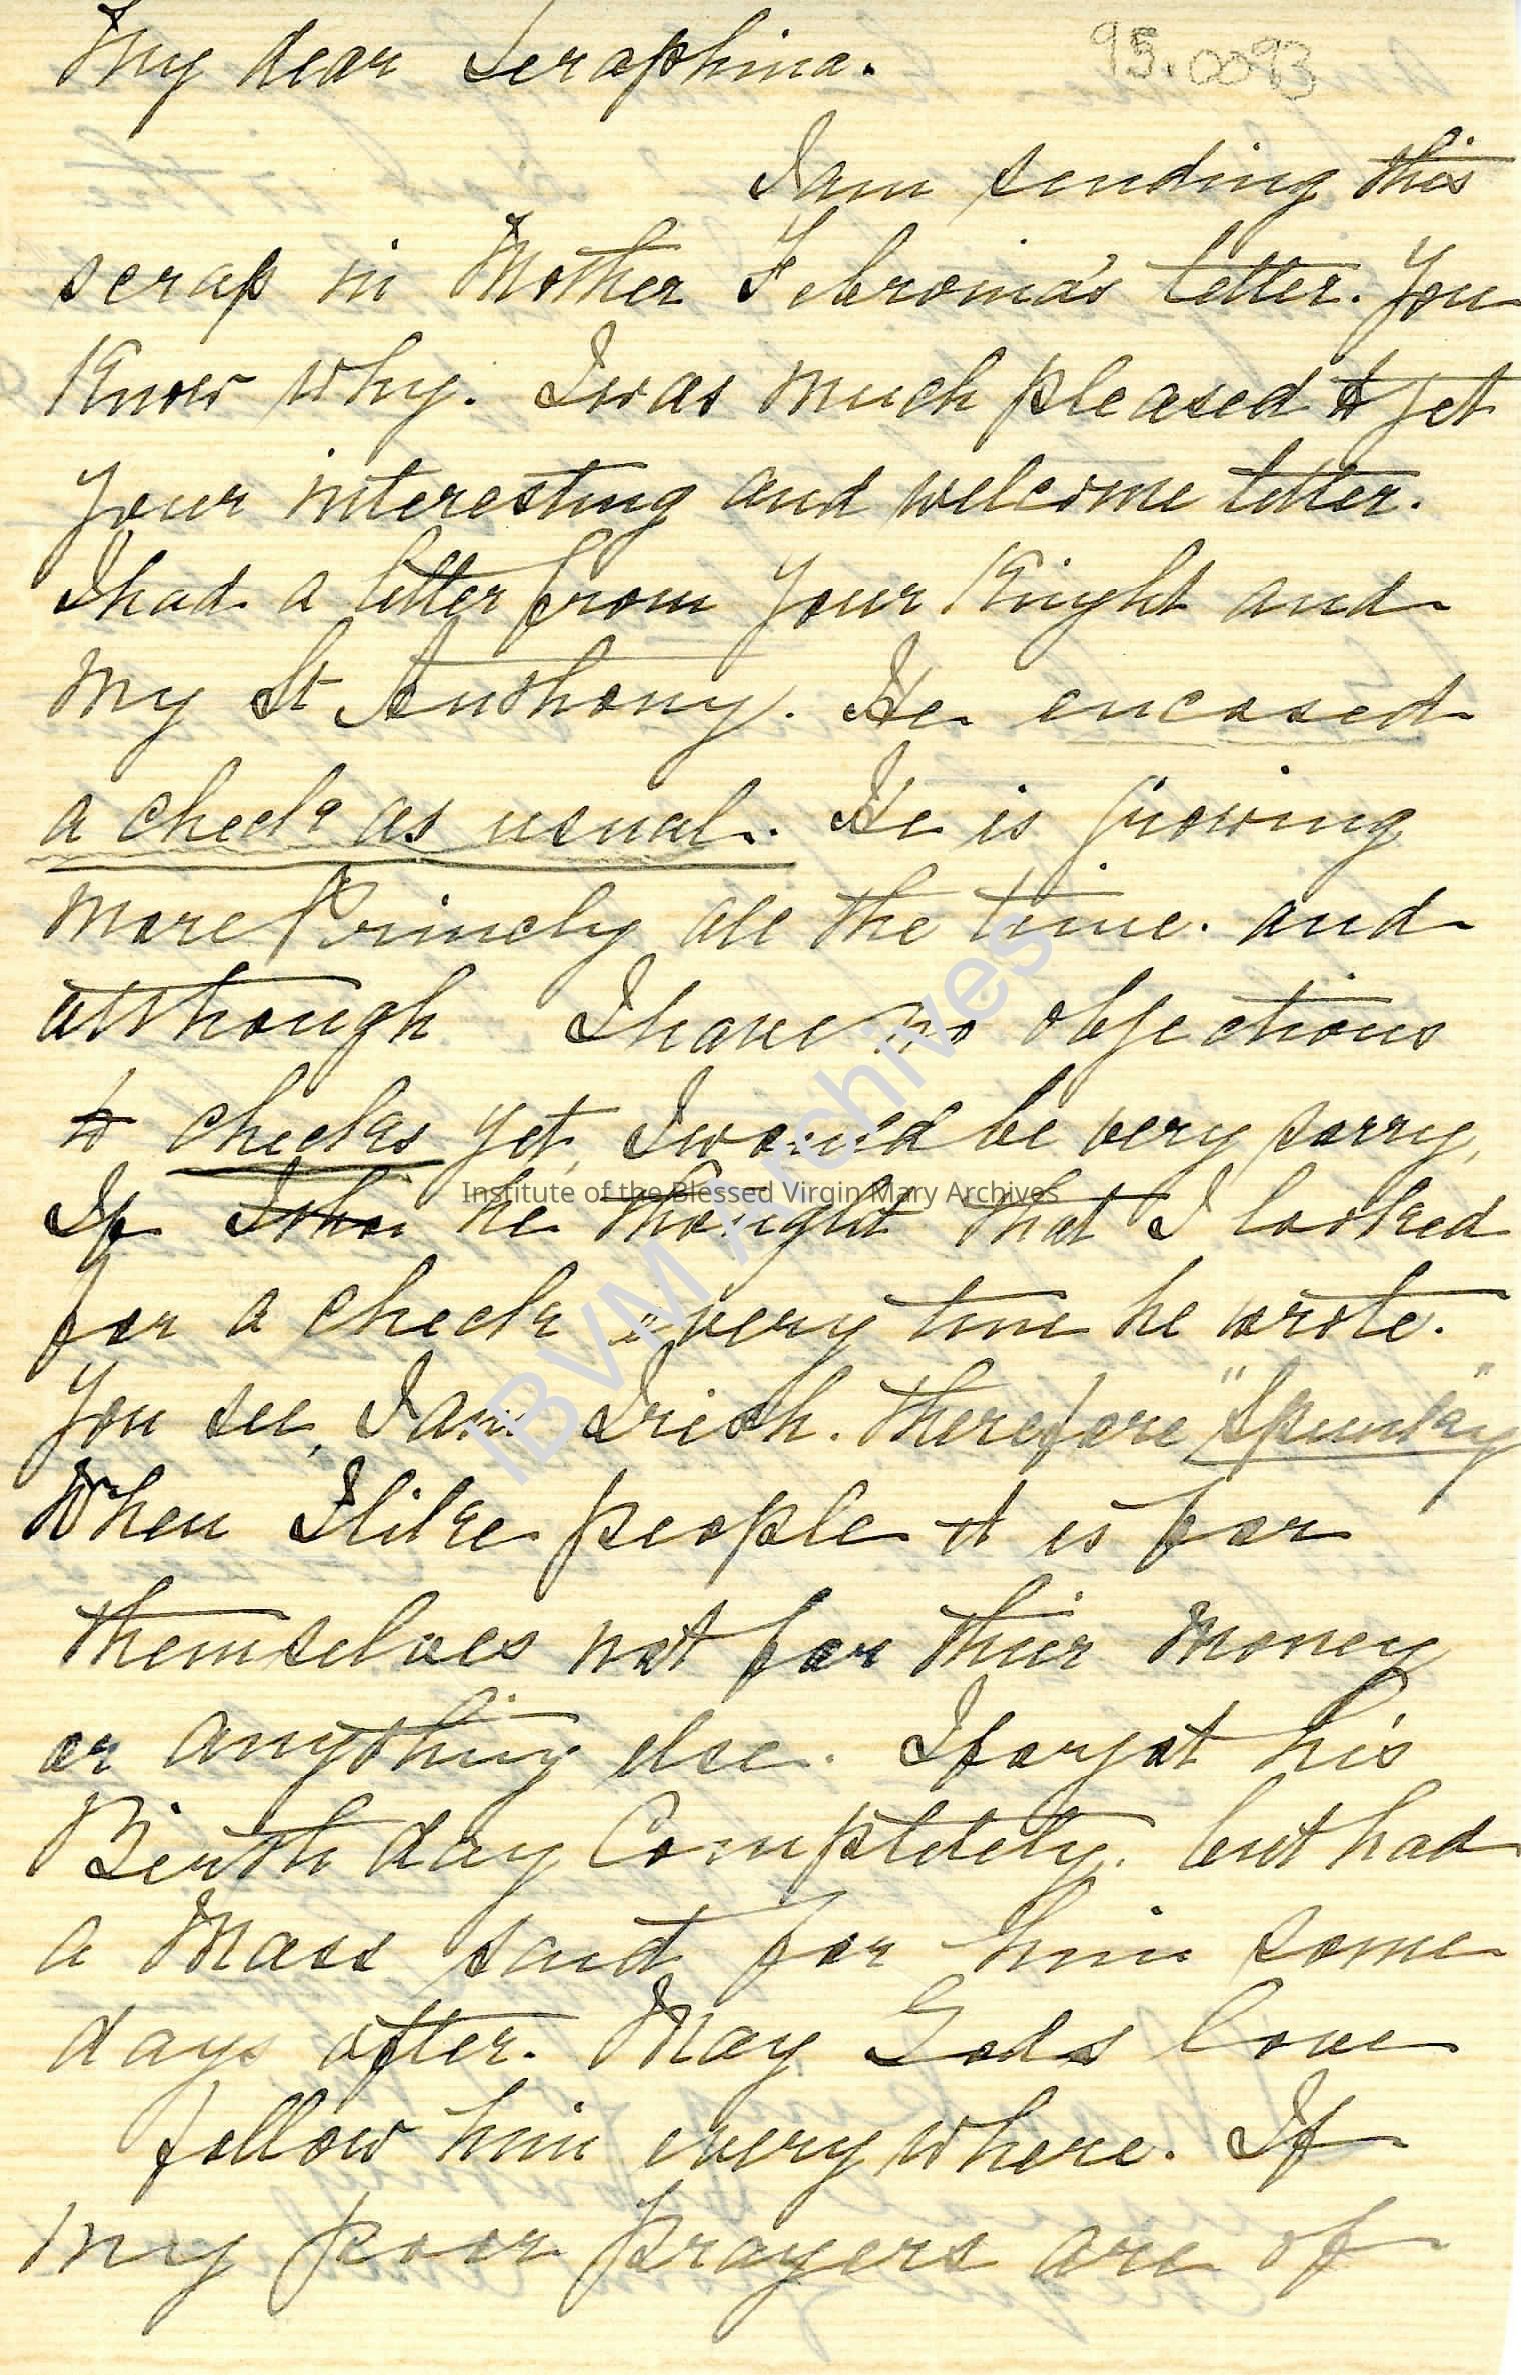 My dear Seraphina.
95.0093
I am sending this
scrap in Mother Febronia's letter. You
Know why. I was much pleased to get
your interesting and welcome letter.
I had a letter from your Knight and
my St Anthony. He encased
a check as usual. He is growing
more Princely all the time. and
although I have no objections
to checks yet, I would be very sorry,
If he thought that I looked
for a check every time he wrote.
You see, I am Irish. therefore "Spunky"
When I like people it is for
themselves not for their money
or anything else. I forgot his
Birth day Completely. but had
a Mass said for him some
days after. May Gods love
follow him every where. If
my poor prayers are of
Institute of the Blessed Virgin Mary Archives
IBVM Archives